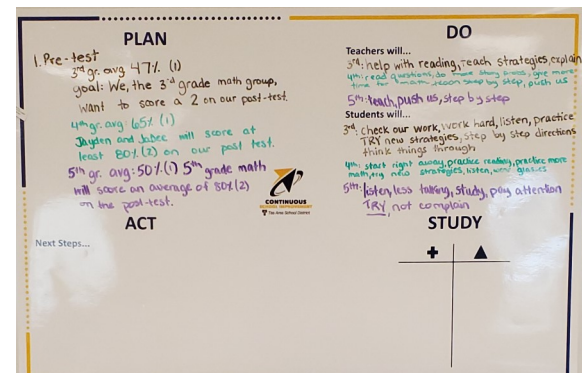 PLAN
1. Pre-test
3rd gr. avg 47% (1)
goal: We, the 3rd grade math group,
want to score a 2 on our post-test.
4th gr. avg 65% (1)
Jayden and JaBee will score at
least 80% (2) on our post test.
5th gr. avg: 50% (1) 5th grade math
will score an average of 80% (2)
on the post-test.
CONTINUOUS
SCHOOL IMPROVEMENT
Area School District
DO
Teachers will...
3rd: help with reading, teach strategies, explain
4th: read questions, do more story probs, give more
time for math, teach step by step, push us
5th: teach, push us, step by step
Students will...
3rd: check our work, work hard, listen, practice
TRY new strategies, step by step directions
think things through
4th: start right away, practice reading, practice more
math, try new strategies, listen, wear glasses
5th: listen, less talking, study, pay attention
TRY, not complain
ACT
Next Steps...
STUDY
+ ▲